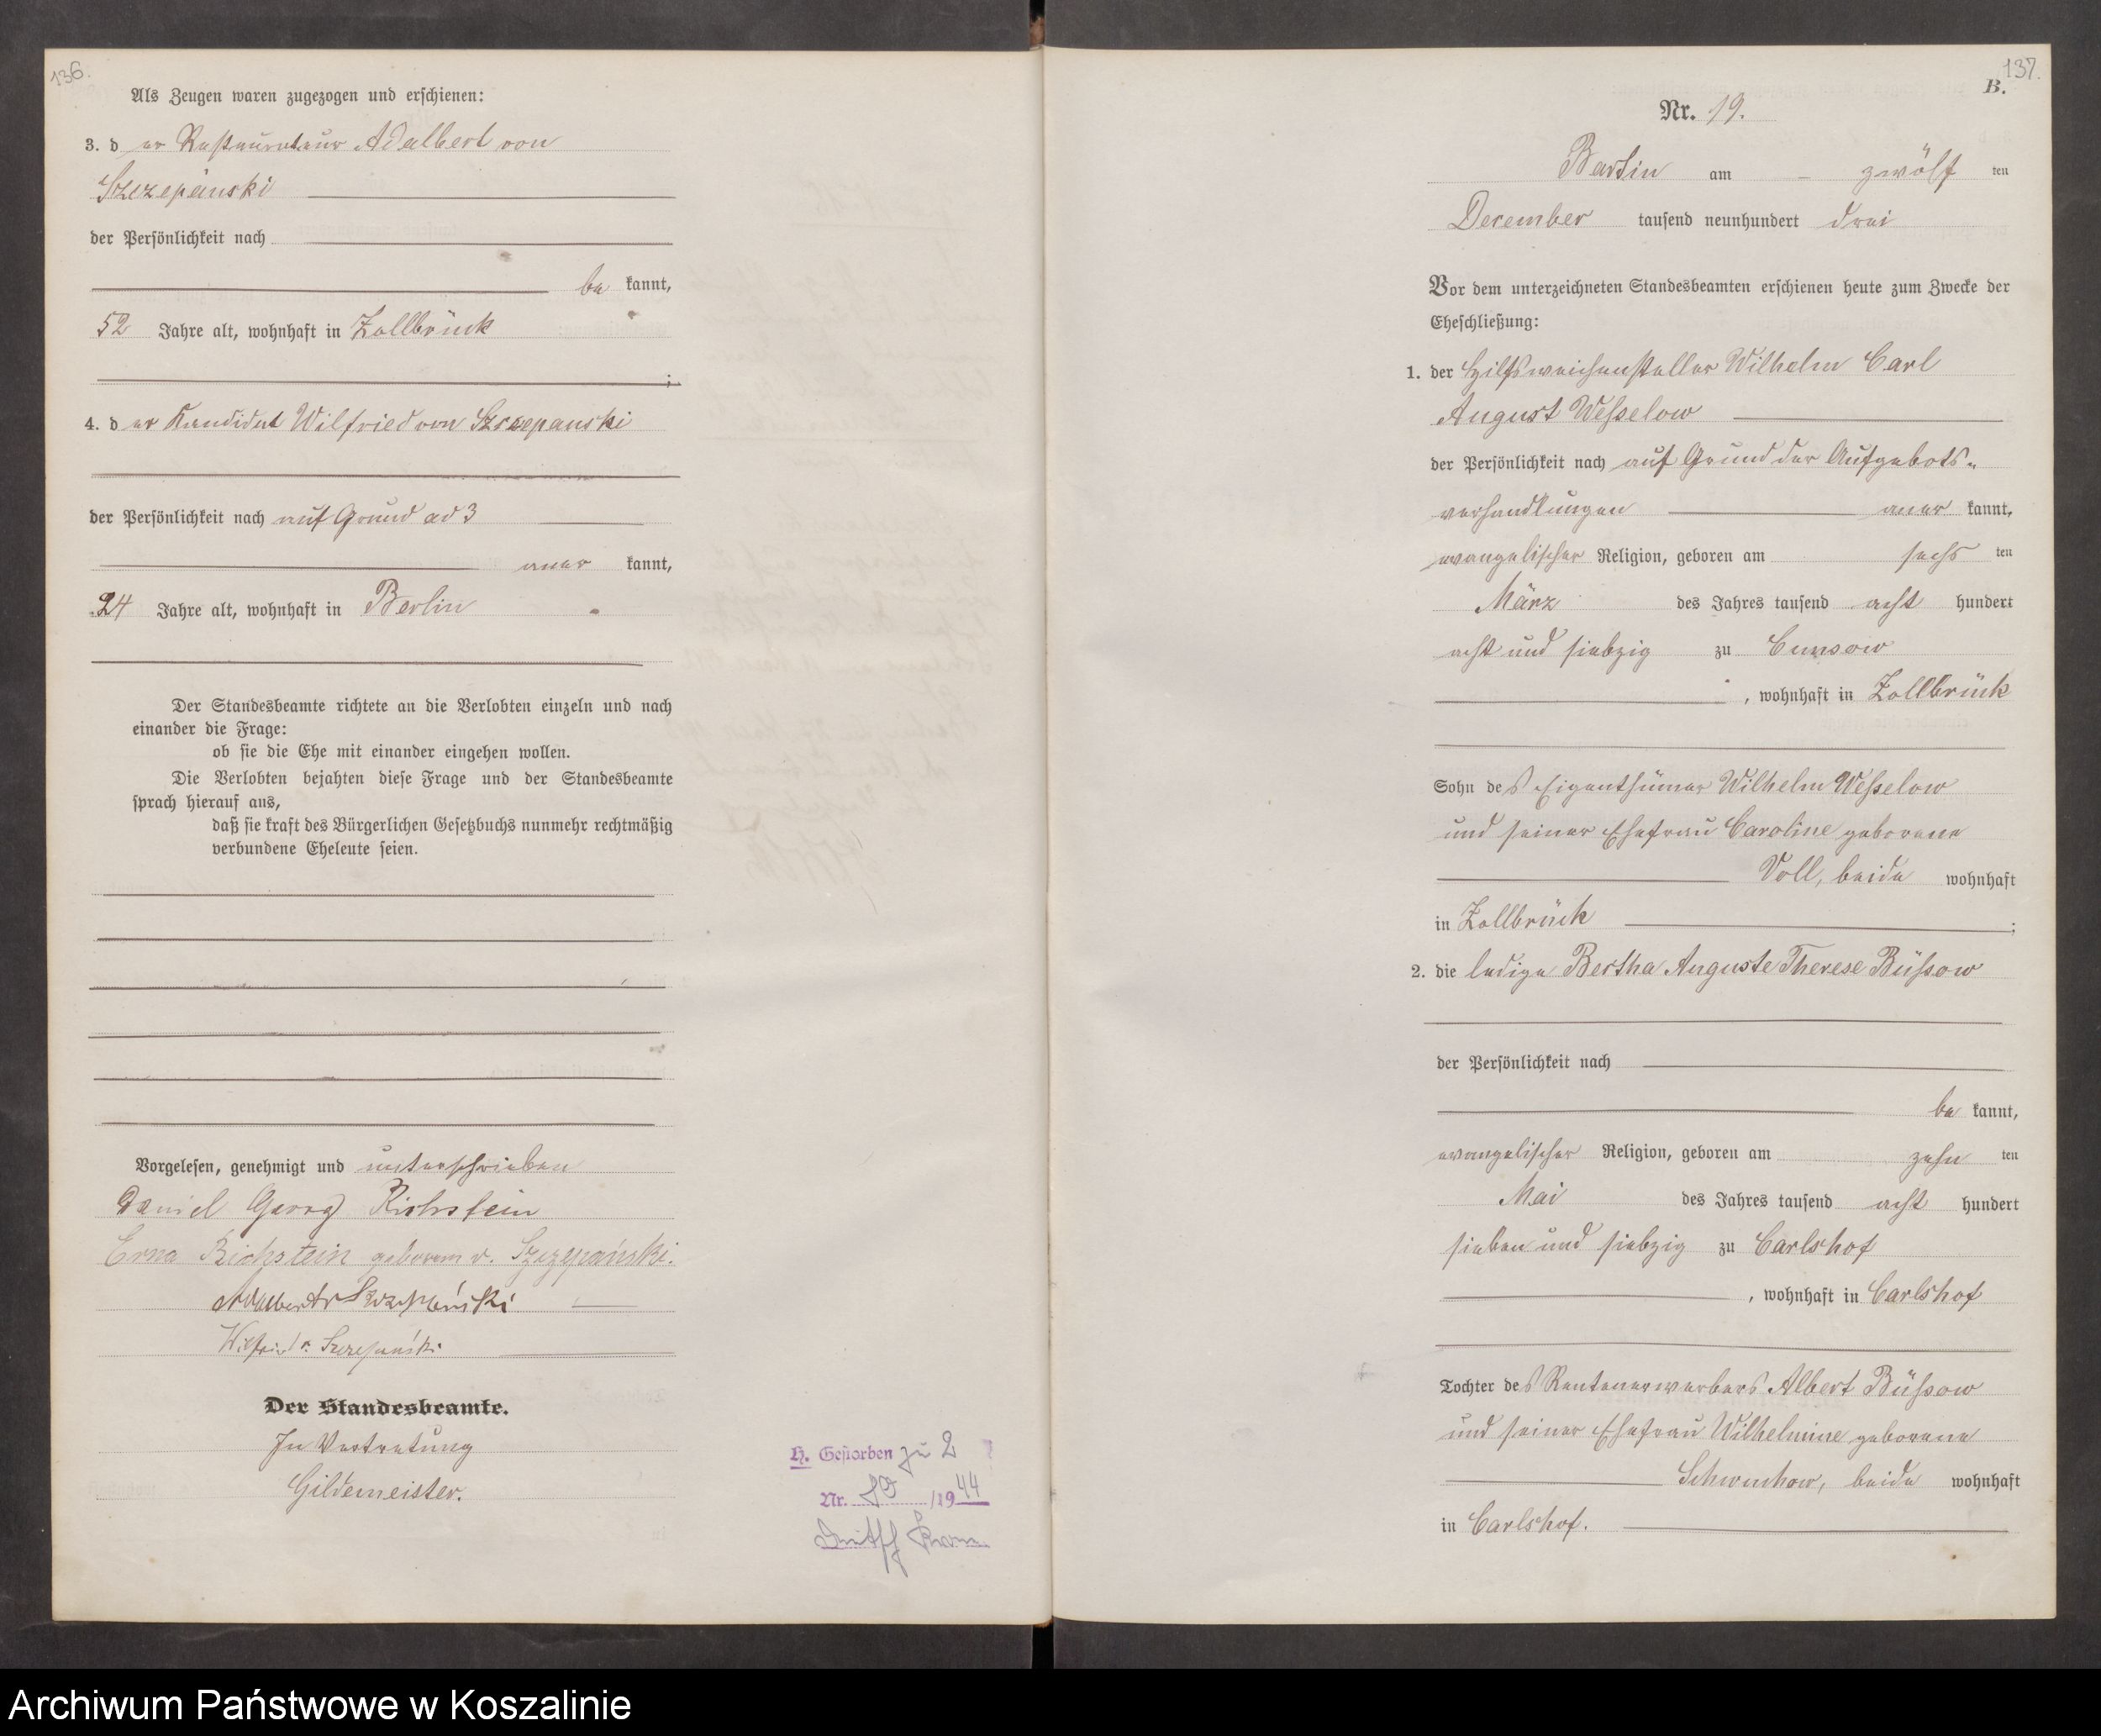 136.
Als Zeugen waren zugezogen und erschienen:
3. der Restaurateur Adalbert von
Szczepański
der Persönlichkeit nach
be kannt,
52 Jahre alt, wohnhaft in Zollbrück
;
4. der Kandidat Wilfried von Szczepanski
der Persönlichkeit nach auf Grund ad 3
aner kannt,
24 Jahre alt, wohnhaft in Berlin
Der Standesbeamte richtete an die Verlobten einzeln und nach
einander die Frage:
ob sie die Ehe mit einander eingehen wollen.
Die Verlobten bejahten diese Frage und der Standesbeamte
sprach hierauf aus,
daß sie kraft des Bürgerlichen Gesetzbuchs nunmehr rechtmäßig
verbundene Eheleute seien.
Vorgelesen, genehmigt und unterschrieben
Daniel Georg Richstein
Erna Richstein geborene v. Szczepański.
Adalbert v Szczepański
Wilfried v. Szczepański
Der Standesbeamte.
In Vertretung
Gildemeister.
H. Gestorben zu 2
Nr. /1944
137.
B.
Nr. 19.
Bartin am zwölf ten
December tausend neunhundert drei
Vor dem unterzeichneten Standesbeamten erschienen heute zum Zwecke der
Eheschließung:
1. der Hilfsweichensteller Wilhelm Carl
August Wesselow
der Persönlichkeit nach auf Grund der Aufgebots-
verhandlungen aner kannt,
evangelischer Religion, geboren am sechs ten
März des Jahres tausend acht hundert
acht und siebzig zu Cunsow
, wohnhaft in Zollbrück
Sohn des Eigenthümer Wilhelm Wesselow
und seiner Ehefrau Caroline geborene
Voll, beide wohnhaft
in Zollbrück ;
2. die ledige Bertha Auguste Therese Büssow
der Persönlichkeit nach
be kannt,
evangelischer Religion, geboren am zehn ten
Mai des Jahres tausend acht hundert
sieben und siebzig zu Carlshof
, wohnhaft in Carlshof
Tochter des Rentenerwerbers Albert Büssow
und seiner Ehefrau Wilhelmine geborene
Schwuchow, beide wohnhaft
in Carlshof.
Archiwum Państwowe w Koszalinie